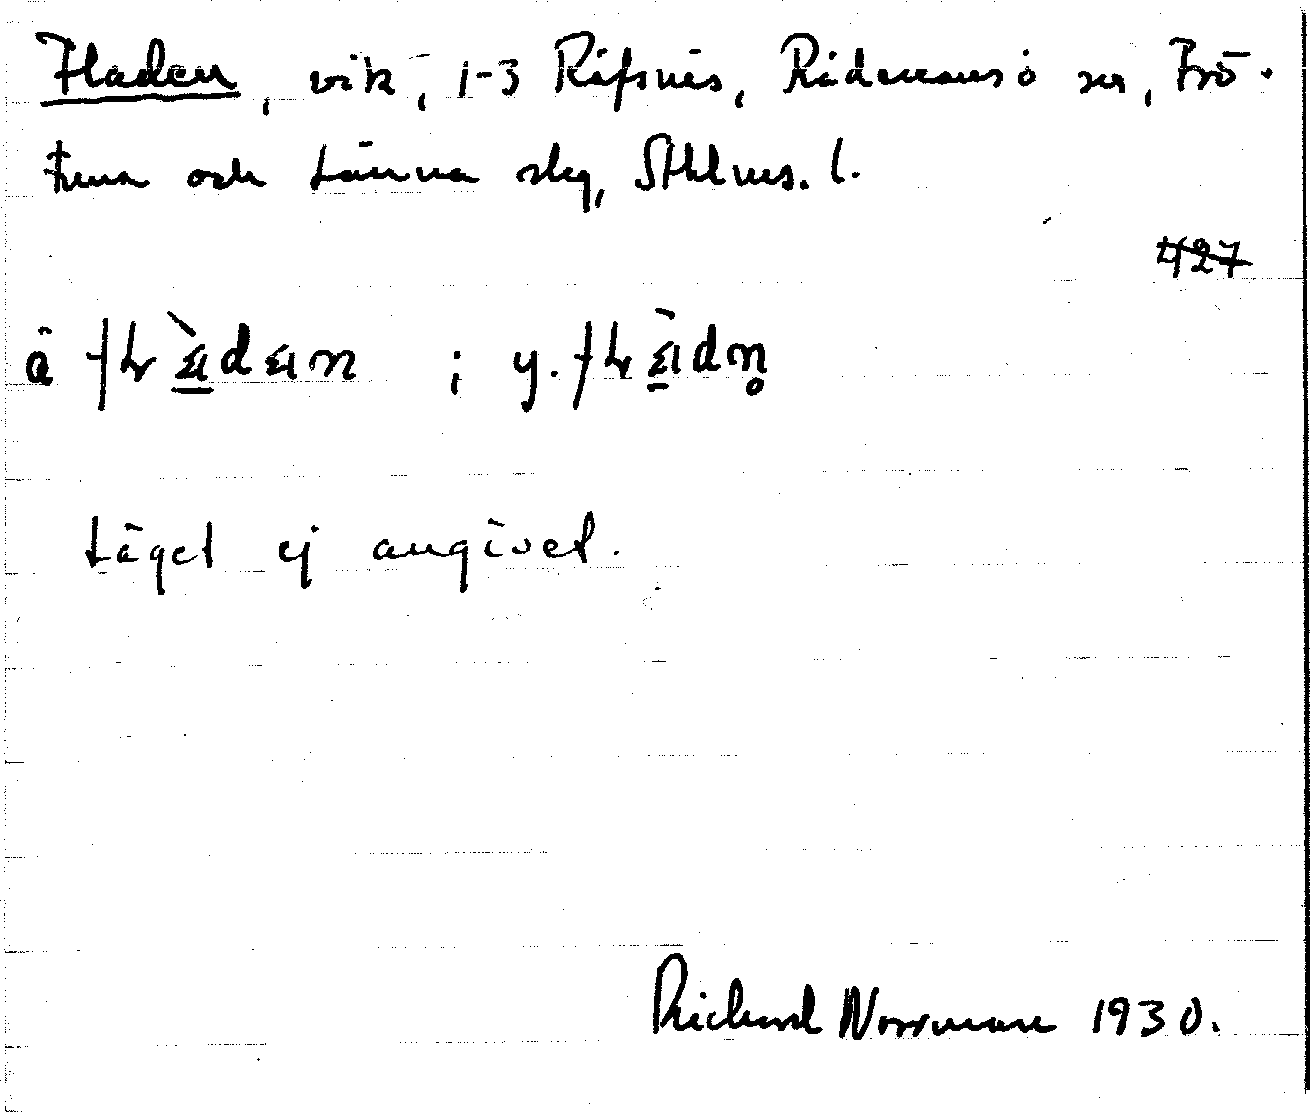 Fladen, vik, 1-3 Räfsnäs, Rådmansö sn, Frö-
tuna och Länna skg, Sthlms. l.
427
Läget ej angivet.
Richard Norrman 1930.